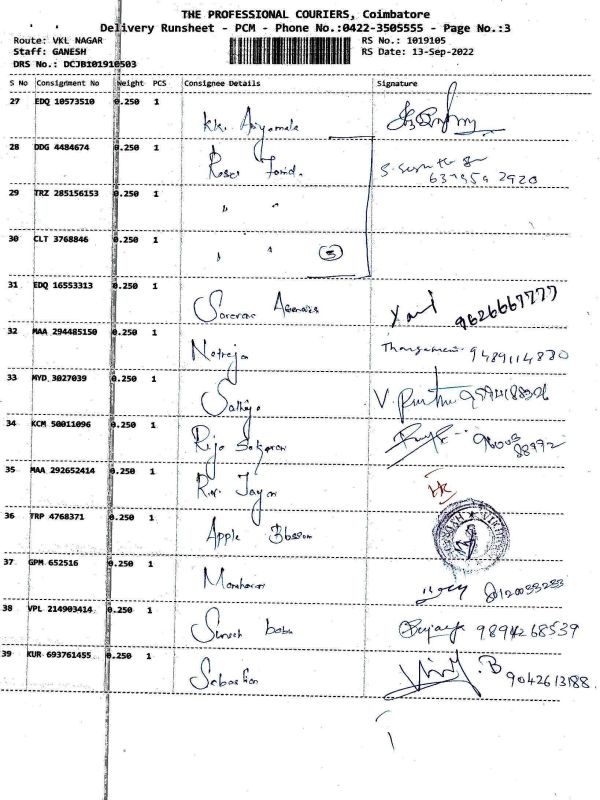 THE PROFESSIONAL COURIERS, Coimbatore
Delivery Runsheet - PCM - Phone No.:0422-3505555 - Page No.:3
Route: VKL NAGAR RS No.: 1019105
Staff: GANESH RS Date: 13-Sep-2022
DRS No.: DCJB101910503
S No Consignment No Weight PCS Consignee Details Signature
27 EDQ 10573510 0.250 1
28 DDG 4484674 0.250 1
29 TRZ 285156153 0.250 1 " "
30 CLT 3768846 0.250 1 " " 3
31 EDQ 16553313 0.250 1 9626667777
32 MAA 294485150 0.250 1 Natrajan 9489114830
33 MYD 3027039 0.250 1 Sathya V.
34 KCM 50011096 0.250 1
35 MAA 292652414 0.250 1
36 TRP 4768371 0.250 1 Apple Blossom
37 GPM 652516 0.250 1 Manoharan
38 VPL 214903414 0.250 1 Suresh babu 9894268539
39 KUR 693761455 0.250 1 Sebastian B 9042613188